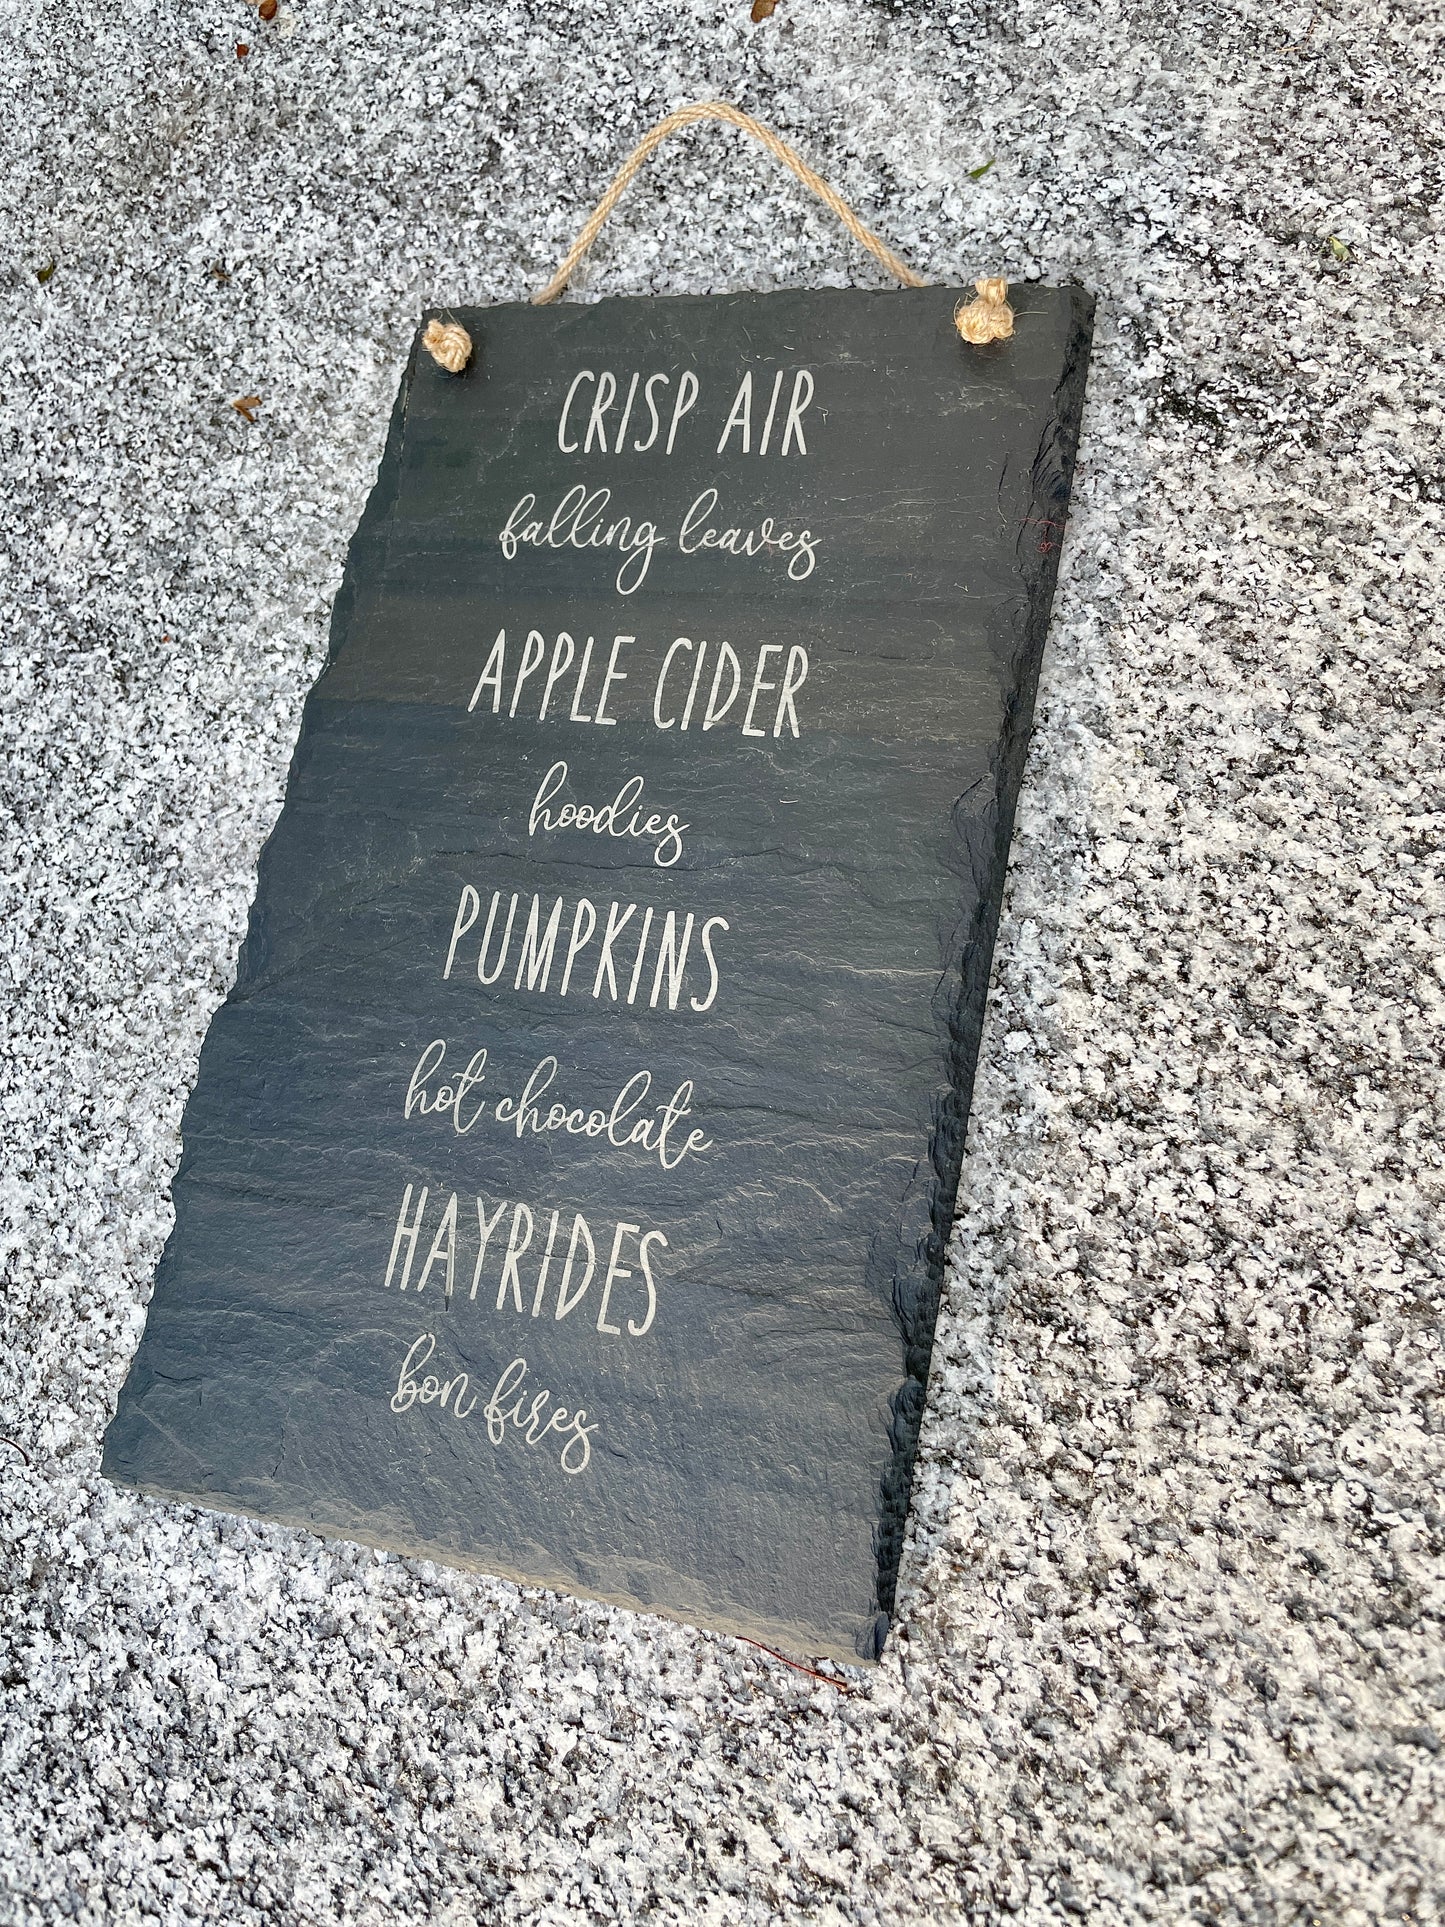 CRISP AIR
falling leaves
APPLE CIDER
hoodies
PUMPKINS
hot chocolate
HAYRIDES
bon fires